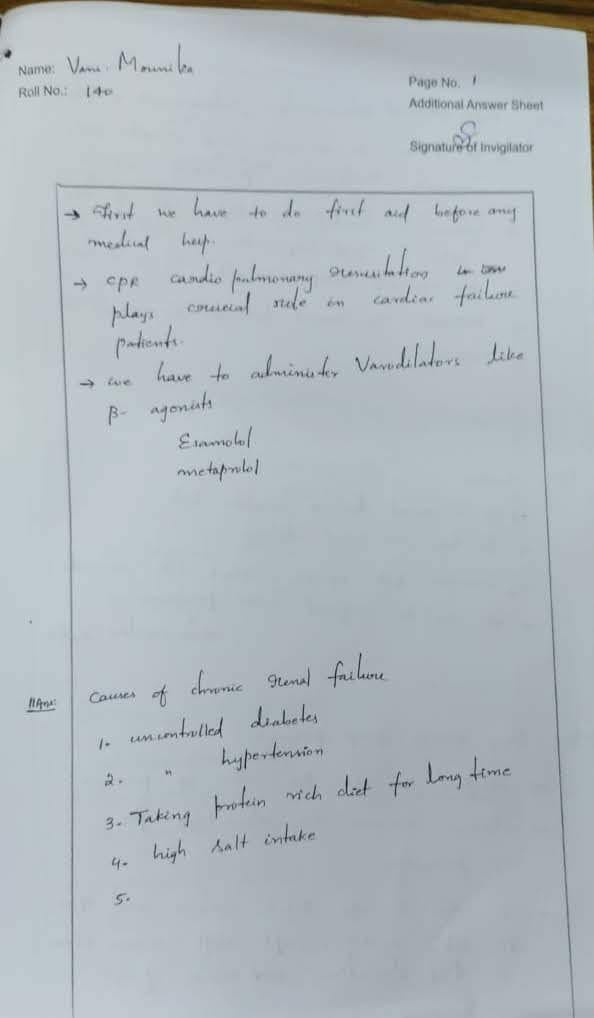 Name: Vani. Mounika
Roll No.: 140
Page No. 1
Additional Answer Sheet
Signature of Invigilator
→ First we have to do first aid before any
medical help.
→ CPR cardio pulmonary resusitation
plays crucial role in cardiac failure
patients.
→ we have to administer Vasodilators like
β- agonists
Esamolol
metaprolol
11Ans:
Causes of chronic renal failure
1. uncontrolled diabetes
2. " hypertension
3. Taking protein rich diet for long time
4. high salt intake
5.